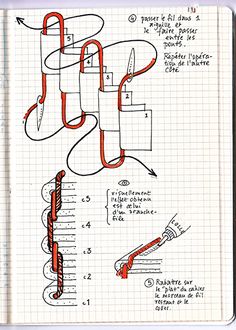 ④ passer le fil dans 1
aiguille et
le faire passer
entre les
ponts.
Répéter l'opéra-
tion de l'autre
côté
visuellement
l'effet obtenu
est celui
d'un
c5
c4
c3
c2
c1
colle
⑤ Rabattre sur
le "plat" du cahier
le morceau de fil
restant et
le coller.